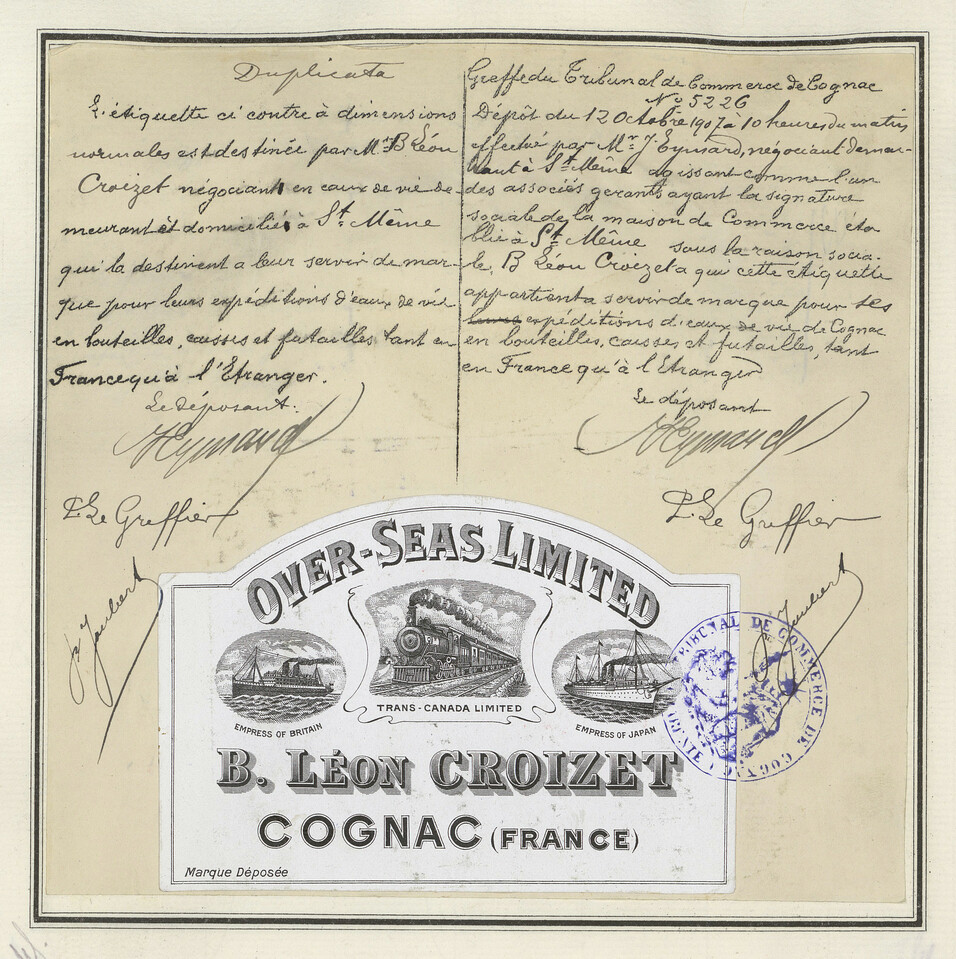 Duplicata
L'étiquette ci contre à dimensions
normales est destinée par Mr B Léon
Croizet négociant en eaux de vie de-
meurant et domicilié à St. Même
qui la destinent a leur servir de mar-
que pour leurs expéditions d'eaux de vie
en bouteilles, caisses et futailles tant en
France qu'à l'Etranger.
Le déposant:
P. Le Greffier
Greffe du Tribunal de Commerce de Cognac
No 5226
Dépôt du 12 Octobre 1907 à 10 heures du matin
effectué par Mr J. Eymard, négociant demeu-
rant à St. Même agissant comme l'un
des associés gerants ayant la signature
sociale de la maison de Commerce éta
blie à St. Même sous la raison socia-
le, B Léon Croizet a qui cette étiquette
appartient a servir de marque pour ses
leurs expéditions d'eaux de vie de Cognac
en bouteilles, caisses et futailles, tant
en France qu'à l'Etranger
Le déposant
P. Le Greffier
OVER-SEAS LIMITED
TRANS-CANADA LIMITED
EMPRESS OF BRITAIN
EMPRESS OF JAPAN
B. LÉON CROIZET
COGNAC (FRANCE)
Marque Déposée
TRIBUNAL DE COMMERCE DE COGNAC